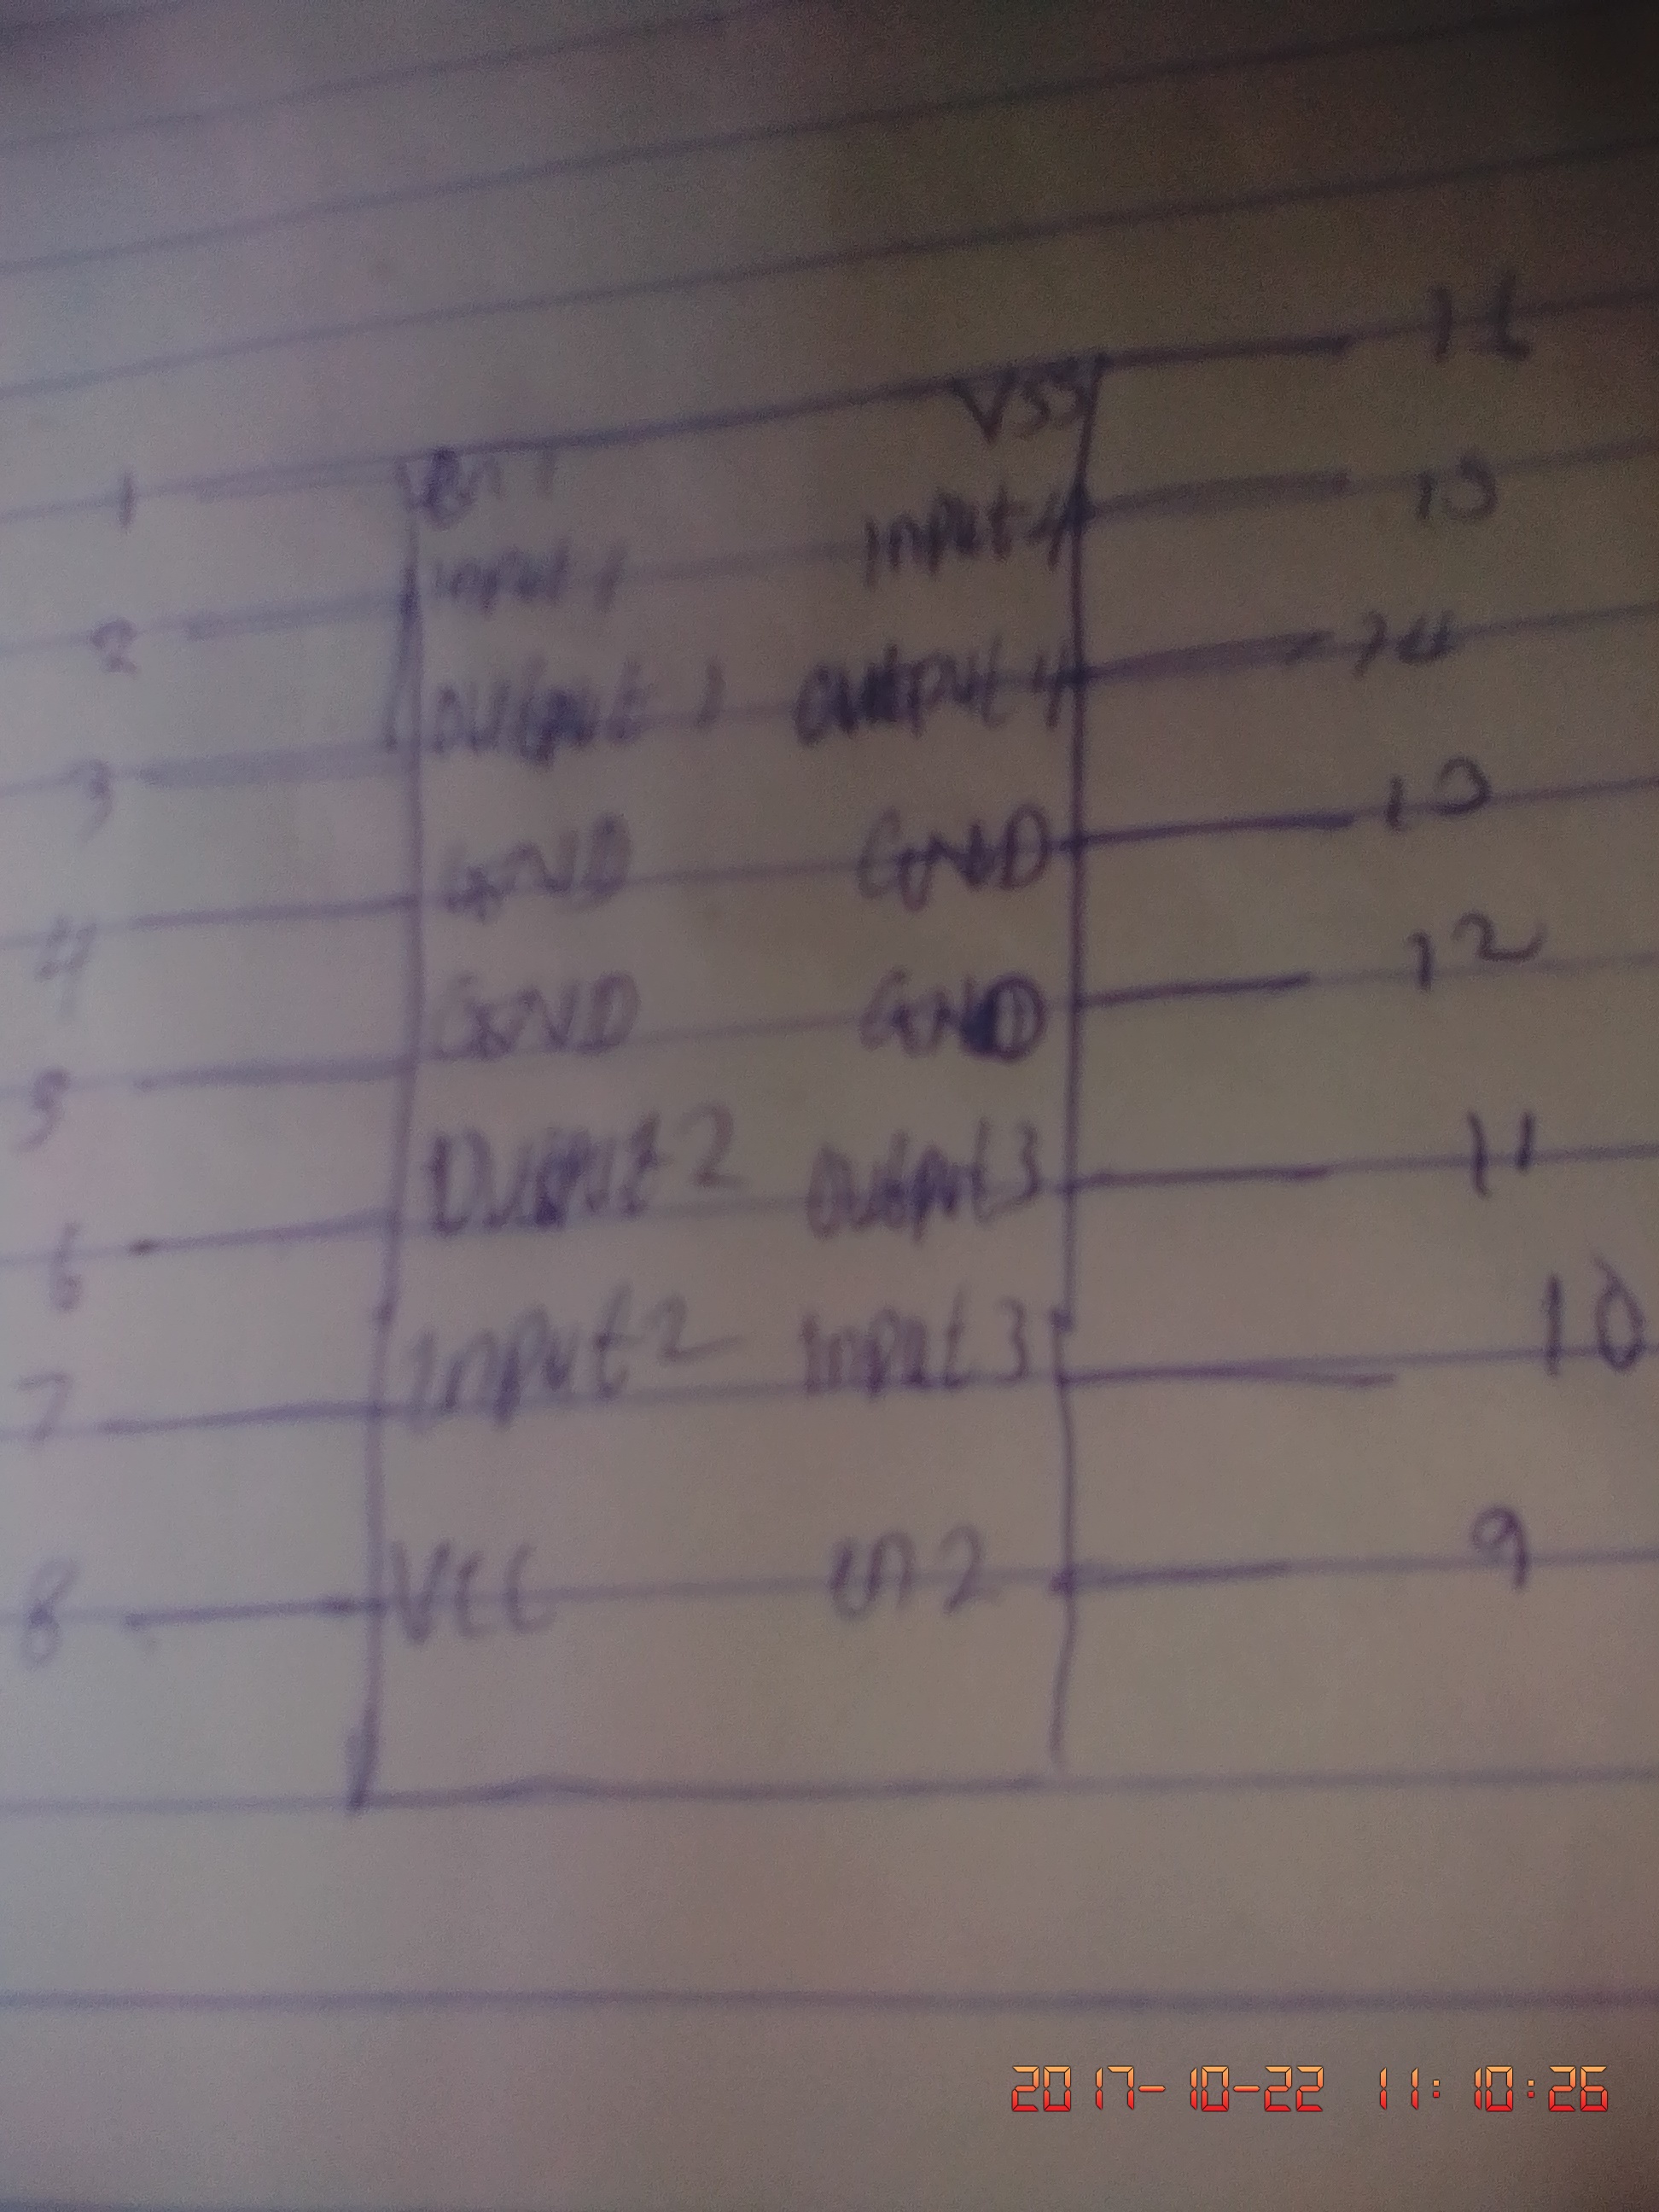 VSS 16
1 en 1
input 4 15
2 input 1
output 4 14
3 output 1
GND 13
4 GND
GND 12
5 GND
output 3 11
6 Output 2
input 3 10
7 input 2
en 2 9
8 VCC
2017-10-22 11:10:26